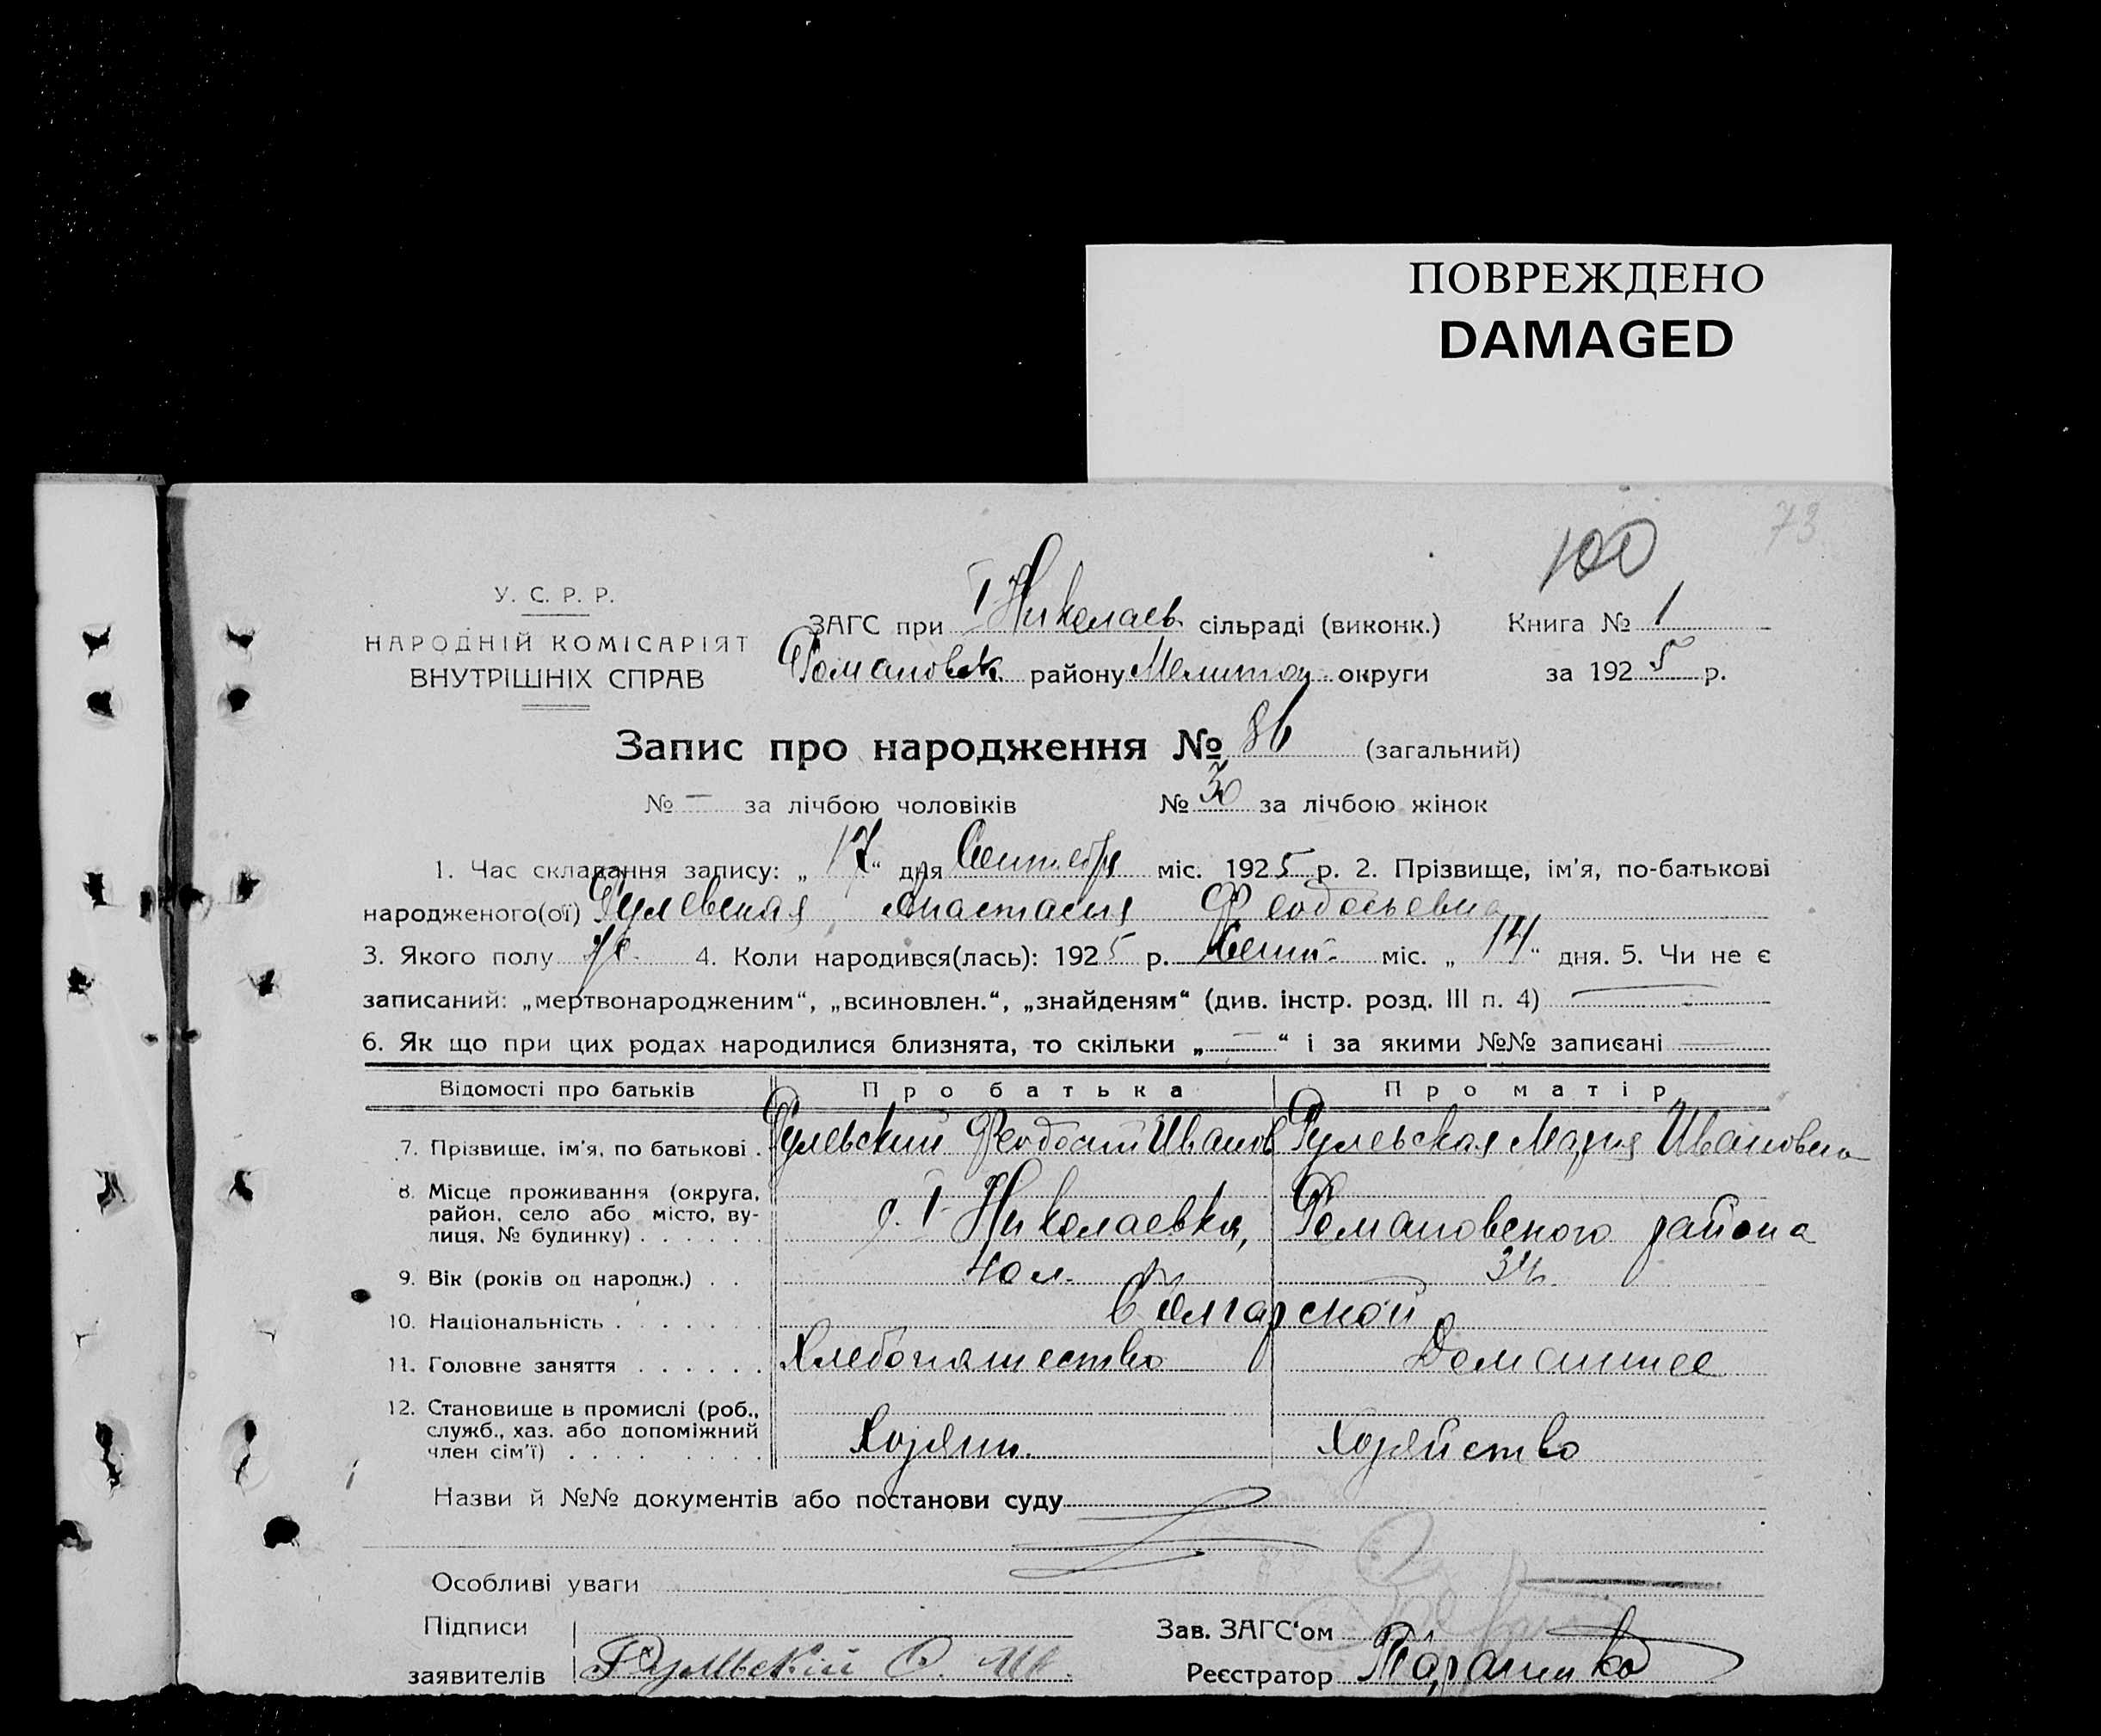 ПОВРЕЖДЕНО
DAMAGED
73
100
У. С. Р. Р.
НАРОДНІЙ КОМІСАРІЯТ
ВНУТРІШНІХ СПРАВ
ЗАГС при I Николаев. сільраді (виконк.) Книга № 1
Романовск. району Мелитоп. округи за 1925 р.
Запис про народження № 86 (загальний)
№ — за лічбою чоловіків № 30 за лічбою жінок
1. Час складання запису: „17“ дня Сентября міс. 1925 р. 2. Прізвище, ім'я, по-батькові
народженого(ої) Гулевская Анастасия Феодосьевна
3. Якого полу ж. 4. Коли народився(лась): 1925 р. Сент. міс. „14“ дня. 5. Чи не є
записаний: „мертвонародженим“, „всиновлен.“, „знайденям“ (див. інстр. розд. III п. 4) —
6. Як що при цих родах народилися близнята, то скільки „—“ і за якими №№ записані —
Відомості про батьків Про батька Про матір
7. Прізвище, ім'я, по батькові . Гулевский Феодосий Иванов Гулевская Мария Ивановна
8. Місце проживання (округа,
район, село або місто, ву-
лиця, № будинку) . . . . . . с. I Николаевка, Романовского района
9. Вік (років од народж.) . . 40 л. 34
10. Національність . . . . . . . Болгарской
11. Головне заняття . . . . . . Хлебопашество Домашнее
12. Становище в промислі (роб.,
служб., хаз. або допоміжний
член сім'ї) . . . . . . . . . Хозяин. Хозяйство
Назви й №№ документів або постанови суду
Особливі уваги
Підписи
заявителів
Зав. ЗАГС'ом
Реєстратор